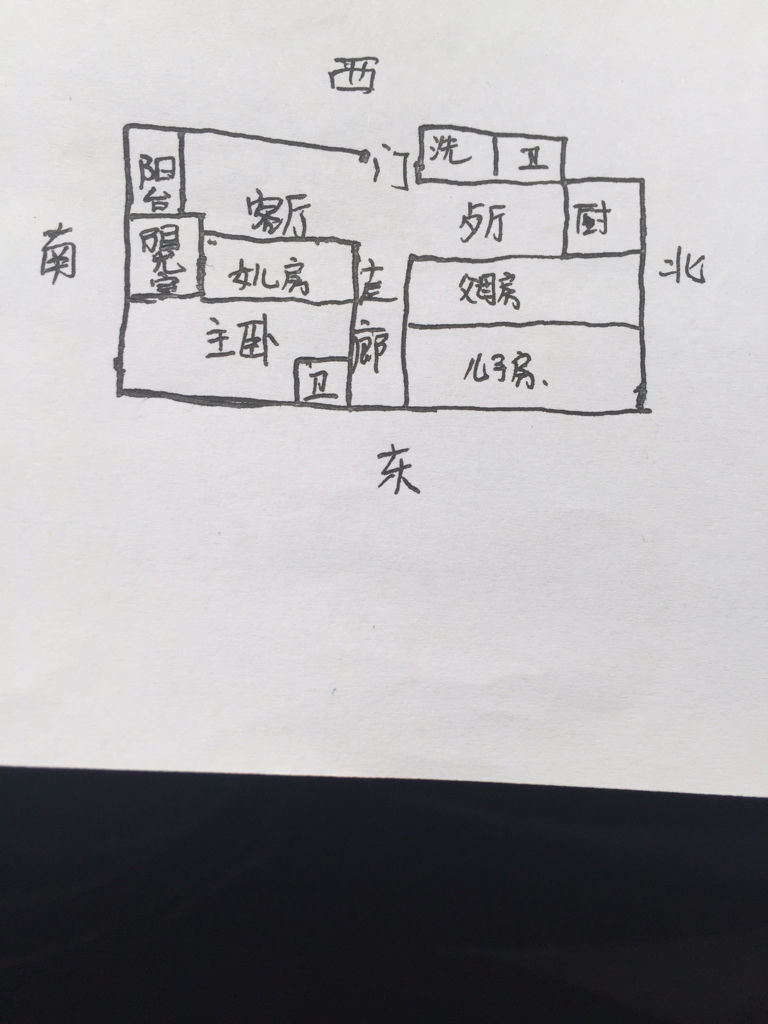 西
门
洗
卫
阳台
客厅
歺厅
厨
南
北
阳光室
女儿房
走廊
父母房
主卧
儿子房、
卫
东